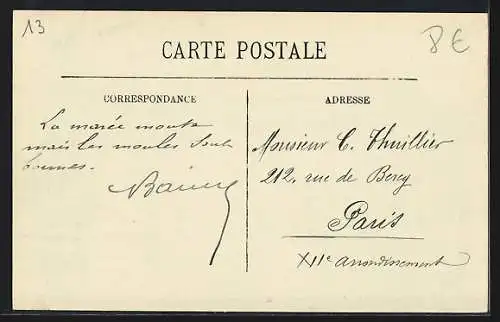 13
8 €
CARTE POSTALE
CORRESPONDANCE
ADRESSE
La marée monte
mais les moules sont
bonnes.
Monsieur C. Thuillier
212, rue de Bercy
Paris
XIIe arrondissement